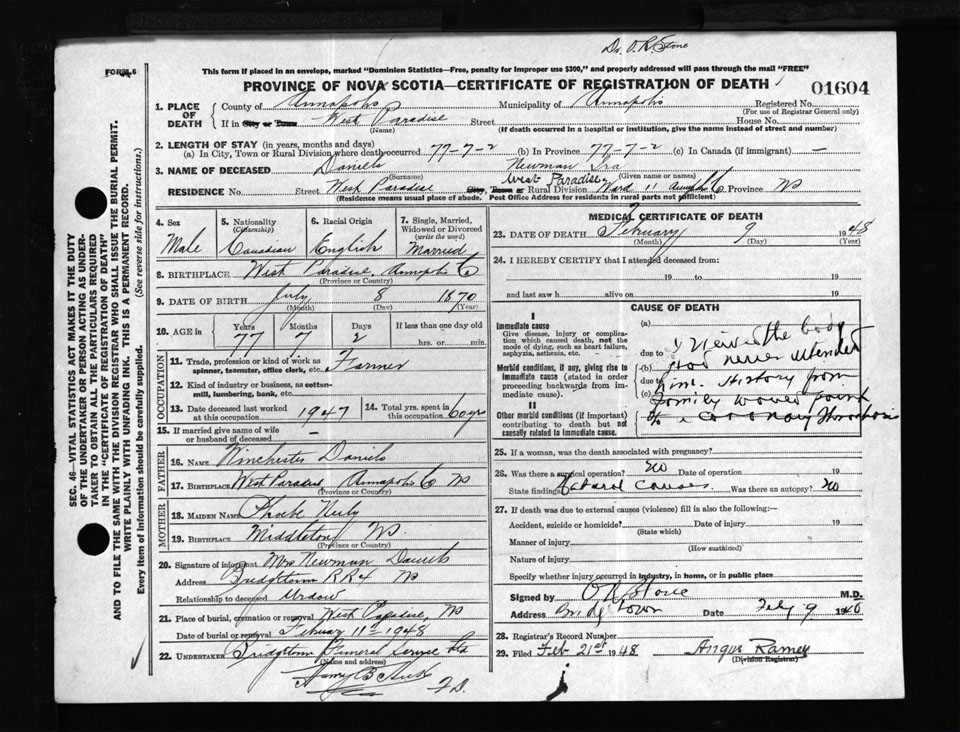 Dr. O. R. Stone
FORM 6
This form if placed in an envelope, marked "Dominion Statistics—Free, penalty for improper use $300," and properly addressed will pass through the mail "FREE"
PROVINCE OF NOVA SCOTIA—CERTIFICATE OF REGISTRATION OF DEATH
01604
1. PLACE OF DEATH County of Annapolis Municipality of Annapolis Registered No.
(For use of Registrar General only)
If in City or Town West Paradise Street House No.
(Name) (If death occurred in a hospital or institution, give the name instead of street and number)
2. LENGTH OF STAY (in years, months and days)
(a) In City, Town or Rural Division where death occurred 77-7-2 (b) In Province 77-7-2 (c) In Canada (if immigrant) —
3. NAME OF DECEASED Daniels Newman Ira
(Surname) (Given name or names)
RESIDENCE No. Street West Paradise City, Town or Rural Division West Paradise Ward 11 Province NS
(Residence means usual place of abode. Post Office Address for residents in rural parts not sufficient)
4. Sex Male
5. Nationality (Citizenship) Canadian
6. Racial Origin English
7. Single, Married, Widowed or Divorced (write the word) Married
8. BIRTHPLACE West Paradise, Annapolis Co
(Province or Country)
9. DATE OF BIRTH July 8 1870
(Month) (Day) (Year)
10. AGE in Years Months Days If less than one day old
77 7 2 hrs. or min.
OCCUPATION
11. Trade, profession or kind of work as spinner, teamster, office clerk, etc. Farmer
12. Kind of industry or business, as cotton-mill, lumbering, bank, etc.
13. Date deceased last worked at this occupation 1947
14. Total yrs. spent in this occupation 60 yrs
15. If married give name of wife or husband of deceased —
FATHER
16. NAME Winchester Daniels
17. BIRTHPLACE West Paradise Annapolis Co NS
(Province or Country)
MOTHER
18. MAIDEN NAME Phoebe
19. BIRTHPLACE Middleton NS.
(Province or Country)
20. Signature of informant Mrs Newman Daniels
Address Bridgetown RR4 NS
Relationship to deceased Widow
21. Place of burial, cremation or removal West Paradise, NS
Date of burial or removal February 11th 1948
22. UNDERTAKER Bridgetown Funeral Service Ltd
(Name and address)
Harry B.
MEDICAL CERTIFICATE OF DEATH
23. DATE OF DEATH February 9 1948
(Month) (Day) (Year)
24. I HEREBY CERTIFY that I attended deceased from:
19 to 19
and last saw h alive on 19
CAUSE OF DEATH
I
Immediate cause
Give disease, injury or complication which caused death, not the mode of dying, such as heart failure, asphyxia, asthenia, etc.
Morbid conditions, if any, giving rise to immediate cause (stated in order proceeding backwards from immediate cause).
II
Other morbid conditions (if important) contributing to death but not causally related to immediate cause.
(a)
due to I viewed the body
(b) Had never attended
due to him. History from
(c) family would point
to a coronary thrombosis
25. If a woman, was the death associated with pregnancy?
26. Was there a surgical operation? No Date of operation 19
State findings Natural causes. Was there an autopsy? No
27. If death was due to external causes (violence) fill in also the following:—
Accident, suicide or homicide? Date of injury 19
(State which)
Manner of injury
(How sustained)
Nature of injury
Specify whether injury occurred in industry, in home, or in public place
Signed by O R Stone M.D.
Address Bridgetown Date Feby 9 1948
28. Registrar's Record Number
29. Filed Feb 21st 1948 Angus Ramey
(Division Registrar)
SEC. 46—VITAL STATISTICS ACT MAKES IT THE DUTY
OF THE UNDERTAKER OR PERSON ACTING AS UNDER-
TAKER TO OBTAIN ALL THE PARTICULARS REQUIRED
IN THE "CERTIFICATE OF REGISTRATION OF DEATH"
AND TO FILE THE SAME WITH THE DIVISION REGISTRAR WHO SHALL ISSUE THE BURIAL PERMIT.
WRITE PLAINLY WITH UNFADING INK. THIS IS A PERMANENT RECORD.
Every item of Information should be carefully supplied. (See reverse side for instructions.)